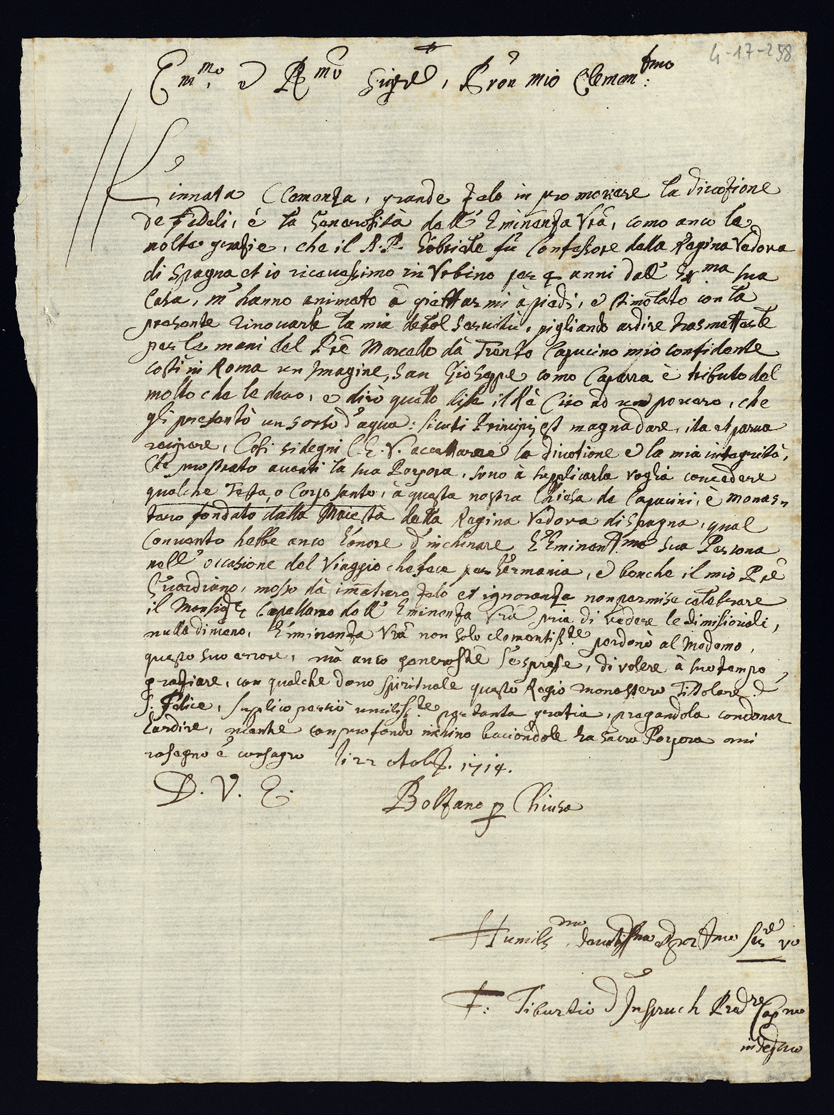 4-17-258
Em.mo e R.mo Sig.re, Pron mio Clemen.mo
L'innata Clemenza, grande zelo in promovere la divozione
de Fideli, è la generosità dell' Eminenza Vrã, como anco le
molte grazie, che il R.P. Gabriele fù Confessore della Regina Vedova
di Spagna et io ricevessimo in Urbino per 4 anni dall' Ec.ma sua
Casa, m'hanno animato â giettarmi â piedi, e stimolato con la
presente rinovarle la mia debol servitù, pigliando ardire trasmetterle
per le mani del Prẽ Marcello dà Trento Capucino mio confidente
costi in Roma un Imagine, San Gioseppe como Caparra è tributo del
molto che le devo, e dirò quello disse il Rè Ciro ad un povero, che
gli presentò un sorso d'aqua: sicuti Principis est magna dare, ita et parva
recipere, Cosi si degni L'E. V. accettare la divotione e la mia integrità,
che prostrato avanti la sua Porpora, sono à suplicarla voglia concedere
qualche Testa, o Corpo santo, à questa nostra Chiesa de Capucini, e monas-
tero fondato dalla Maiestà della Regina Vedova di Spagna, qual
Convento hebbe anco l'onore d'inchinare l'Eminent.ma sua Persona
nell' occasione del Viaggio che fece per Germania, e benche il mio Prẽ
Guardiano, mosso dà imaturo zelo et ignoranza non permise celebrare
il Monsig.r Capellano dell' Eminenza Vrã pria di vedere le dimissoriali,
nulla di meno, l'Eminenza Vrã non solo clementiss.te perdonò al medemo,
questo suo errore, mà anco generoste s'espresse, di volere à suo tempo,
graziare, con qualche dono spirituale questo Regio monastero Titolare di
S: Felice, suplico perciò umiliss.te per tanta gratia, pregandola condonar
l'ardire, mentre con profondo inchino baciandole la sacra Porpora mi
rasegno è consagro li 22 Ottob. 1714.
D. V. E. Bolzano p Chiusa
Humiliss.mo Servo
F: Tiburtio d'Inspruch Predre Cap.no
indegno